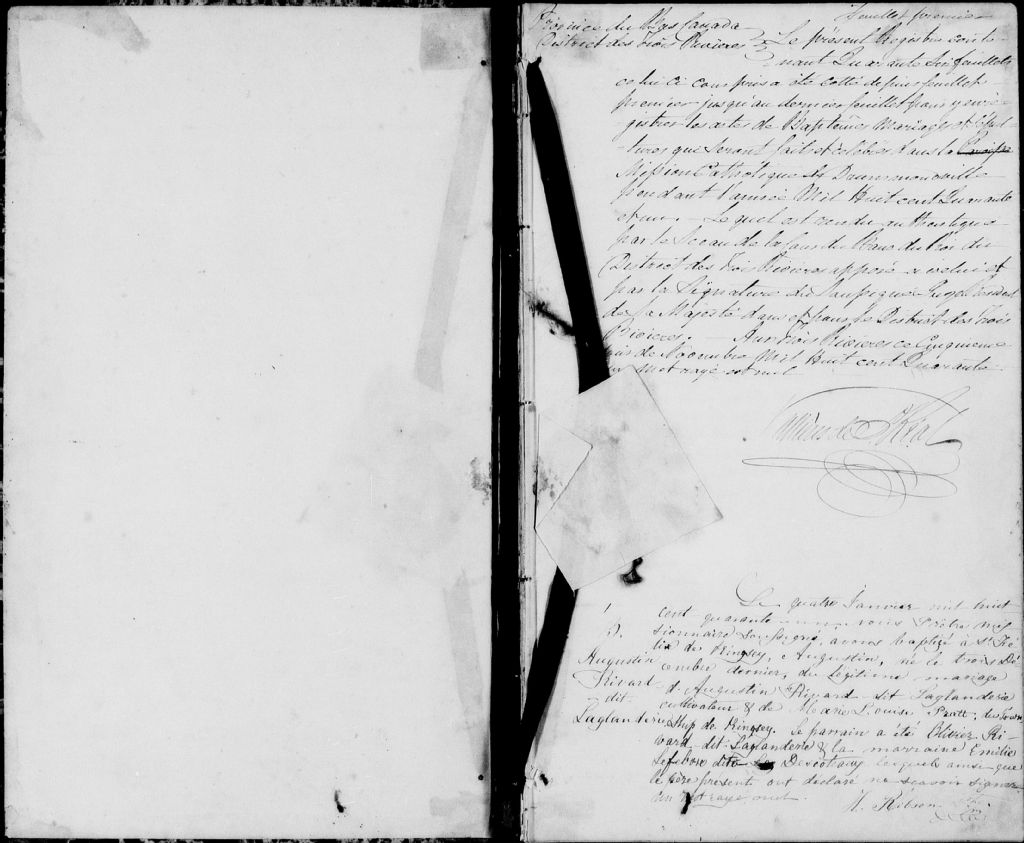 Feuillet premier
Province du Bas Canada
District des Trois Rivières
Le présent Registre conte-
nant Quarante Six feuillets
celui ci compris a été cotté depuis feuillet
premier jusqu'au dernier feuillet pour y enré-
gistrer les actes de Baptêmes Mariages et Sépul-
tures qui seront faits et célébrés dans la Paroisse
Mission Catholique de Drummondville
pendant l'année Mil Huit cent Quarante
et un. Lequel est rendu authentique
par le Sceau de la Cour du Banc du Roi du
District des Trois Rivières apposé à icelui et
par la Signature du Soussigné Juge Résident
de Sa Majesté dans et pour le District des Trois
Rivières. Aux Trois Rivières ce Cinquième
jour de Novembre Mil Huit cent Quarante.
un mot rayé est nul
Vallières de St Réal
Le quatre Janvier mil huit
cent quarante un nous Prêtre Mis
sionnaire Soussigné, avons baptizé à St Fé
lix de Kingsey, Augustin, né le trois Dé
cembre dernier, du légitime mariage
d'Augustin Rivard dit Laglanderie
cultivateur & de Marie Louise Pratt, du Town
Ship de Kingsey. Le parrain a été Olivier Ri-
vard dit Laglanderie & la marraine Emilie
Lefebvre dite Descoteaux lesquels ainsi que
le père présent ont déclaré ne savoir signer
un mot rayé nul.
H. Robson
1
B.
Augustin
Rivard
dit
Laglanderie